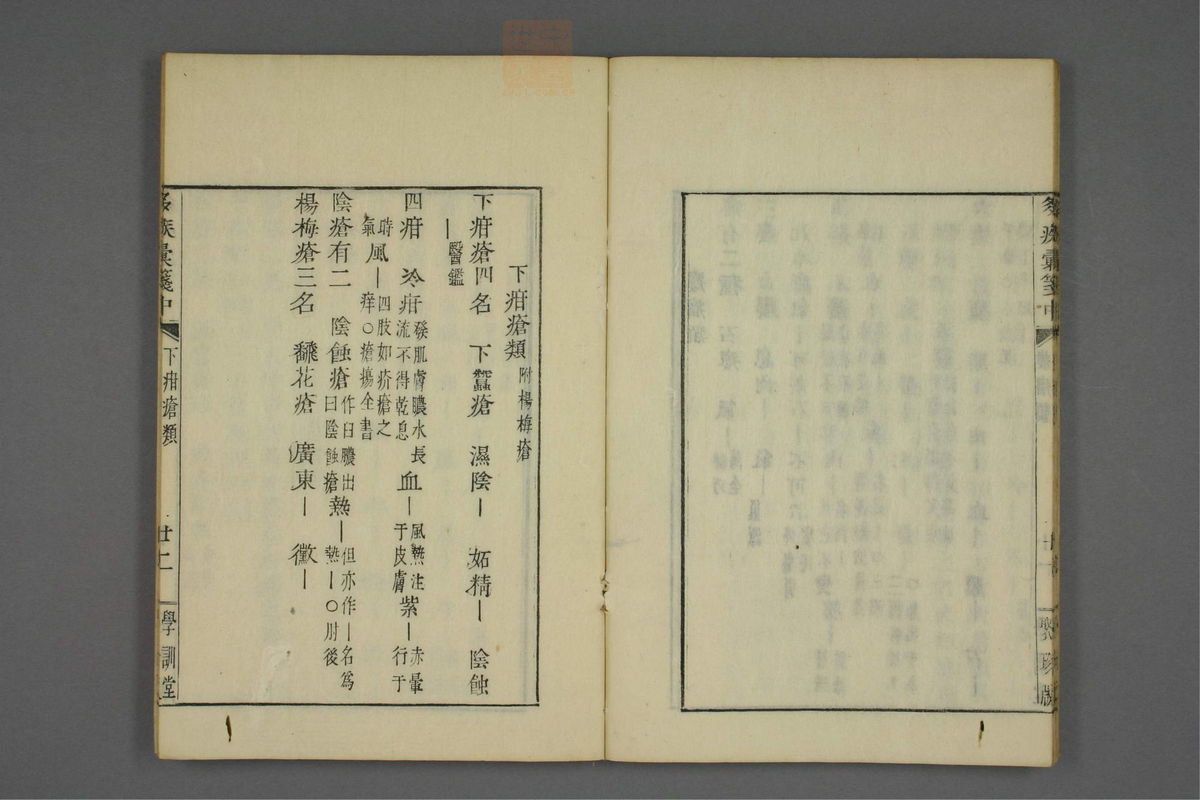 下疳瘡類 附楊梅瘡
下疳瘡四名 下蠶瘡 濕陰｜ 妬精｜ 陰蝕
｜醫鑑
四疳 冷疳 發肌膚膿水長流不得乾息 血｜ 風熱注于皮膚 紫｜ 赤暈行于
時風｜ 四肢如疥瘡之
氣 痒○瘡瘍全書
陰瘡有二 陰蝕瘡 作臼膿出曰陰蝕瘡 熱｜ 但亦作｜名爲熱｜○肘後
楊梅瘡三名 飜花瘡 廣東｜ 黴｜
彙箋中 下疳瘡類 廿二 學訓堂
彙箋中
聚珍版